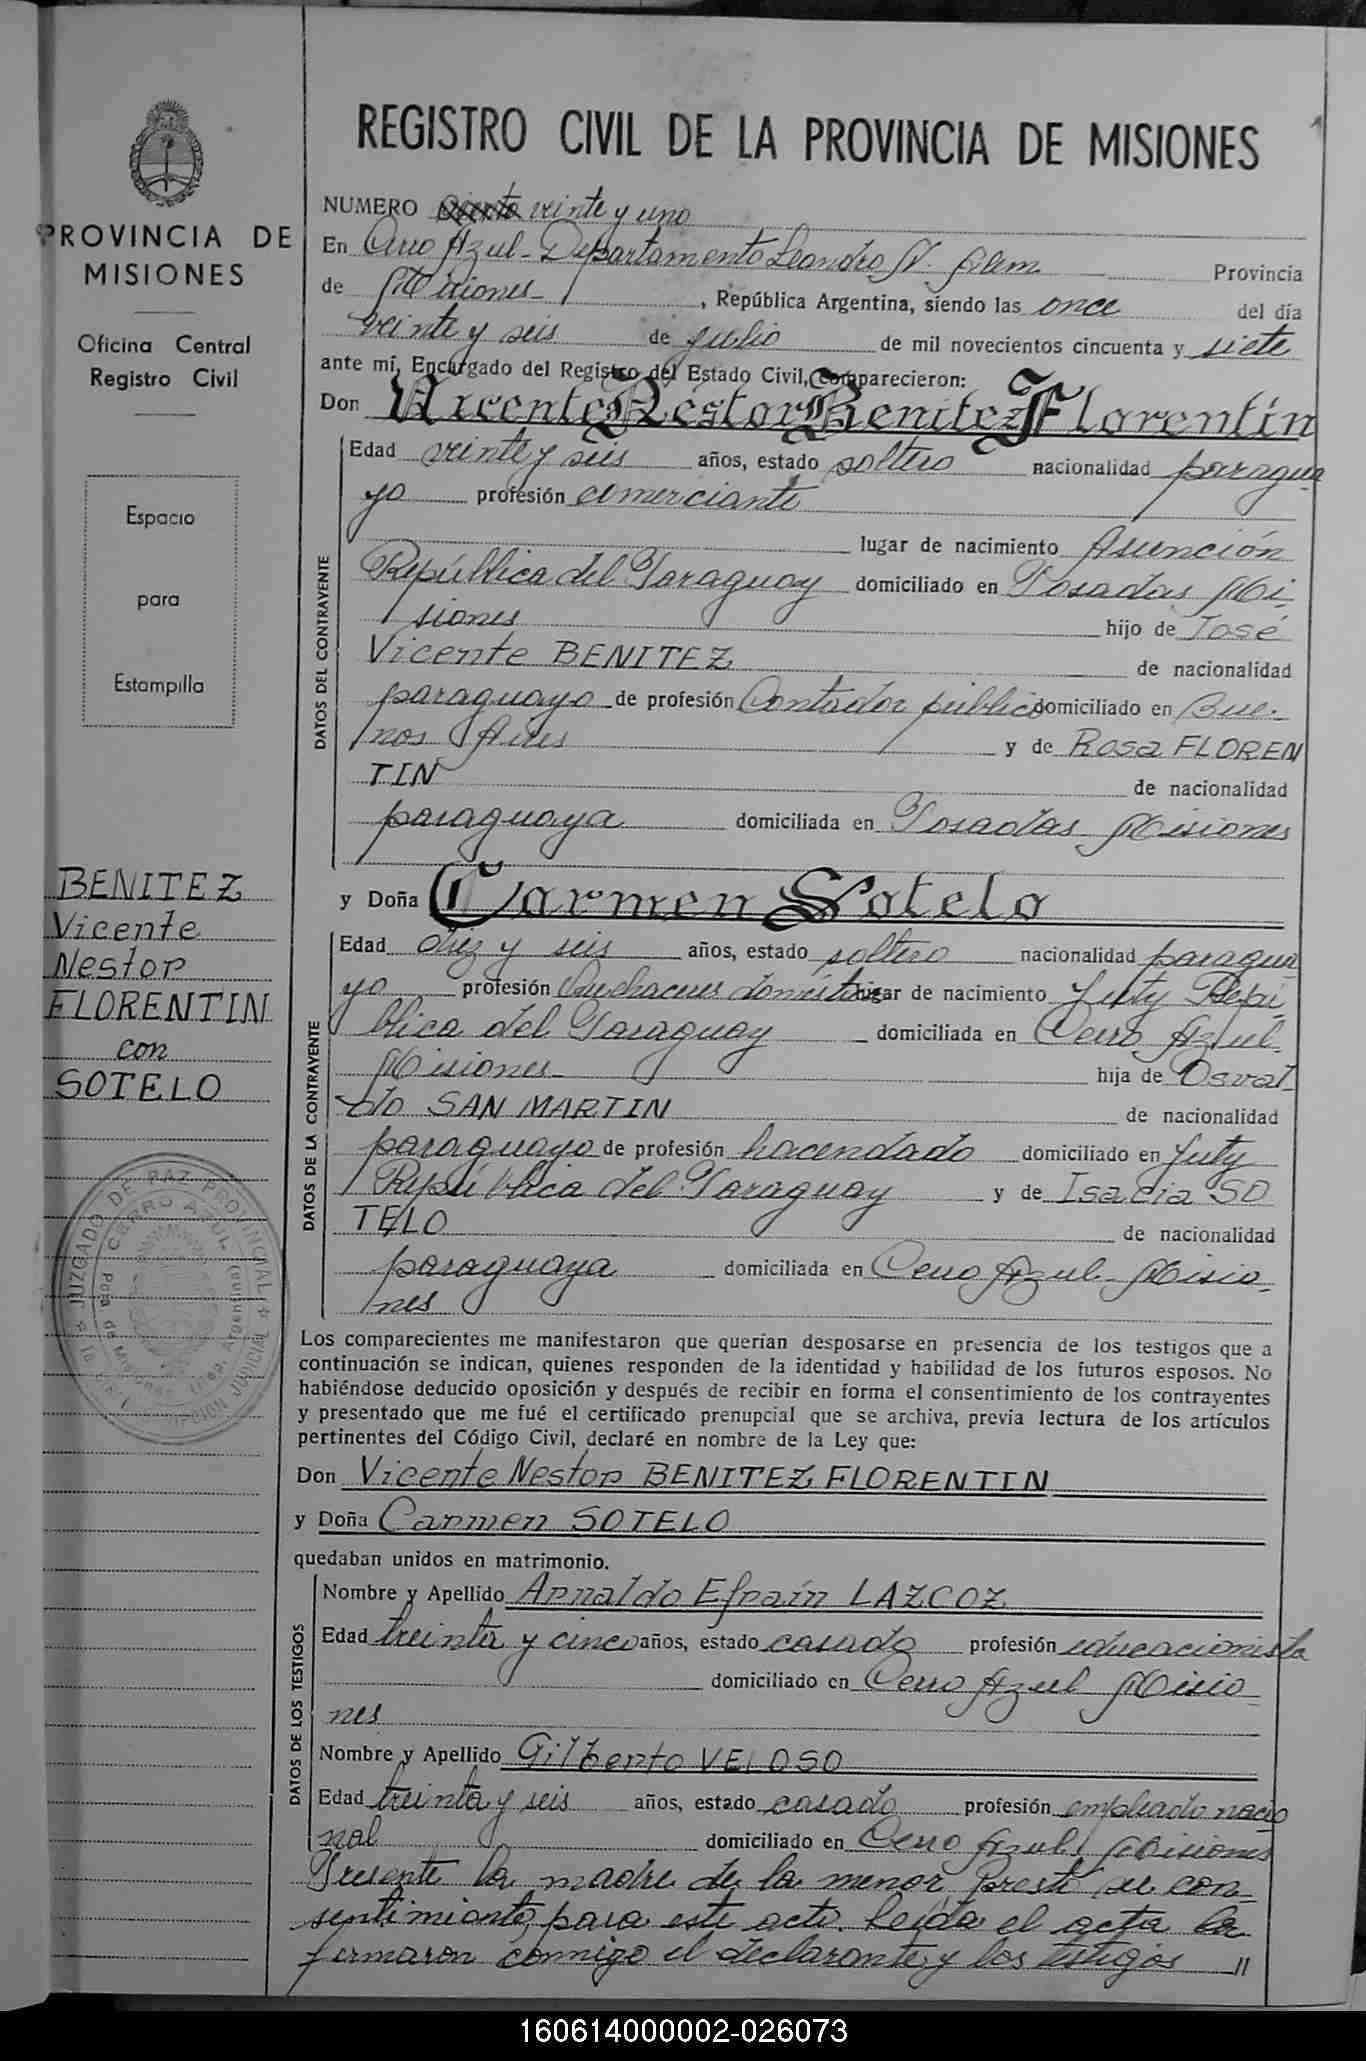 REGISTRO CIVIL DE LA PROVINCIA DE MISIONES
PROVINCIA DE
MISIONES
Oficina Central
Registro Civil
Espacio
para
Estampilla
BENITEZ
Vicente
Nestor
FLORENTIN
con
SOTELO
JUZGADO DE PAZ PROVINCIAL
CERRO AZUL
NUMERO veinte y uno
En Cerro Azul - Departamento Leandro N. Alem Provincia
de Misiones , República Argentina, siendo las once del día
veinte y seis de julio de mil novecientos cincuenta y siete
ante mí, Encargado del Registro del Estado Civil, comparecieron:
Don Vicente Néstor Benitez Florentín
DATOS DEL CONTRAYENTE
Edad veinte y seis años, estado soltero nacionalidad paragua
yo profesión comerciante
lugar de nacimiento Asunción
República del Paraguay domiciliado en Posadas Mi-
siones hijo de José
Vicente BENITEZ de nacionalidad
paraguayo de profesión Contador público domiciliado en Bue-
nos Aires y de Rosa FLOREN
TIN de nacionalidad
paraguaya domiciliada en Posadas Misiones
y Doña Carmen Sotelo
DATOS DE LA CONTRAYENTE
Edad diez y seis años, estado soltero nacionalidad paragua
ya profesión Quehaceres domésticos lugar de nacimiento Yuty Repú-
blica del Paraguay domiciliada en Cerro Azul-
Misiones hija de Osval
do SAN MARTIN de nacionalidad
paraguayo de profesión hacendado domiciliado en Yuty
República del Paraguay y de Isacia SO
TELO de nacionalidad
paraguaya domiciliada en Cerro Azul - Misio-
nes
Los comparecientes me manifestaron que querían desposarse en presencia de los testigos que a
continuación se indican, quienes responden de la identidad y habilidad de los futuros esposos. No
habiéndose deducido oposición y después de recibir en forma el consentimiento de los contrayentes
y presentado que me fué el certificado prenupcial que se archiva, previa lectura de los artículos
pertinentes del Código Civil, declaré en nombre de la Ley que:
Don Vicente Nestor BENITEZ FLORENTIN
y Doña Carmen SOTELO
quedaban unidos en matrimonio.
DATOS DE LOS TESTIGOS
Nombre y Apellido Arnaldo Efraín LAZCOZ
Edad treinta y cinco años, estado casado profesión educacionista
domiciliado en Cerro Azul Misio-
nes
Nombre y Apellido Gilberto VELOSO
Edad treinta y seis años, estado casado profesión empleado nacio
nal domiciliado en Cerro Azul Misiones
Presente la madre de la menor prestó su con-
sentimiento para este acto. Leída el acta la
firmaron conmigo el declarante y los testigos //
160614000002-026073